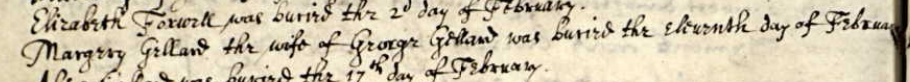 Elizabeth Foxwell was buried the 2d day of February.
Margery Gellard the wife of George Gellard was buried the Eleventh day of February
was buried the 17th day of February.